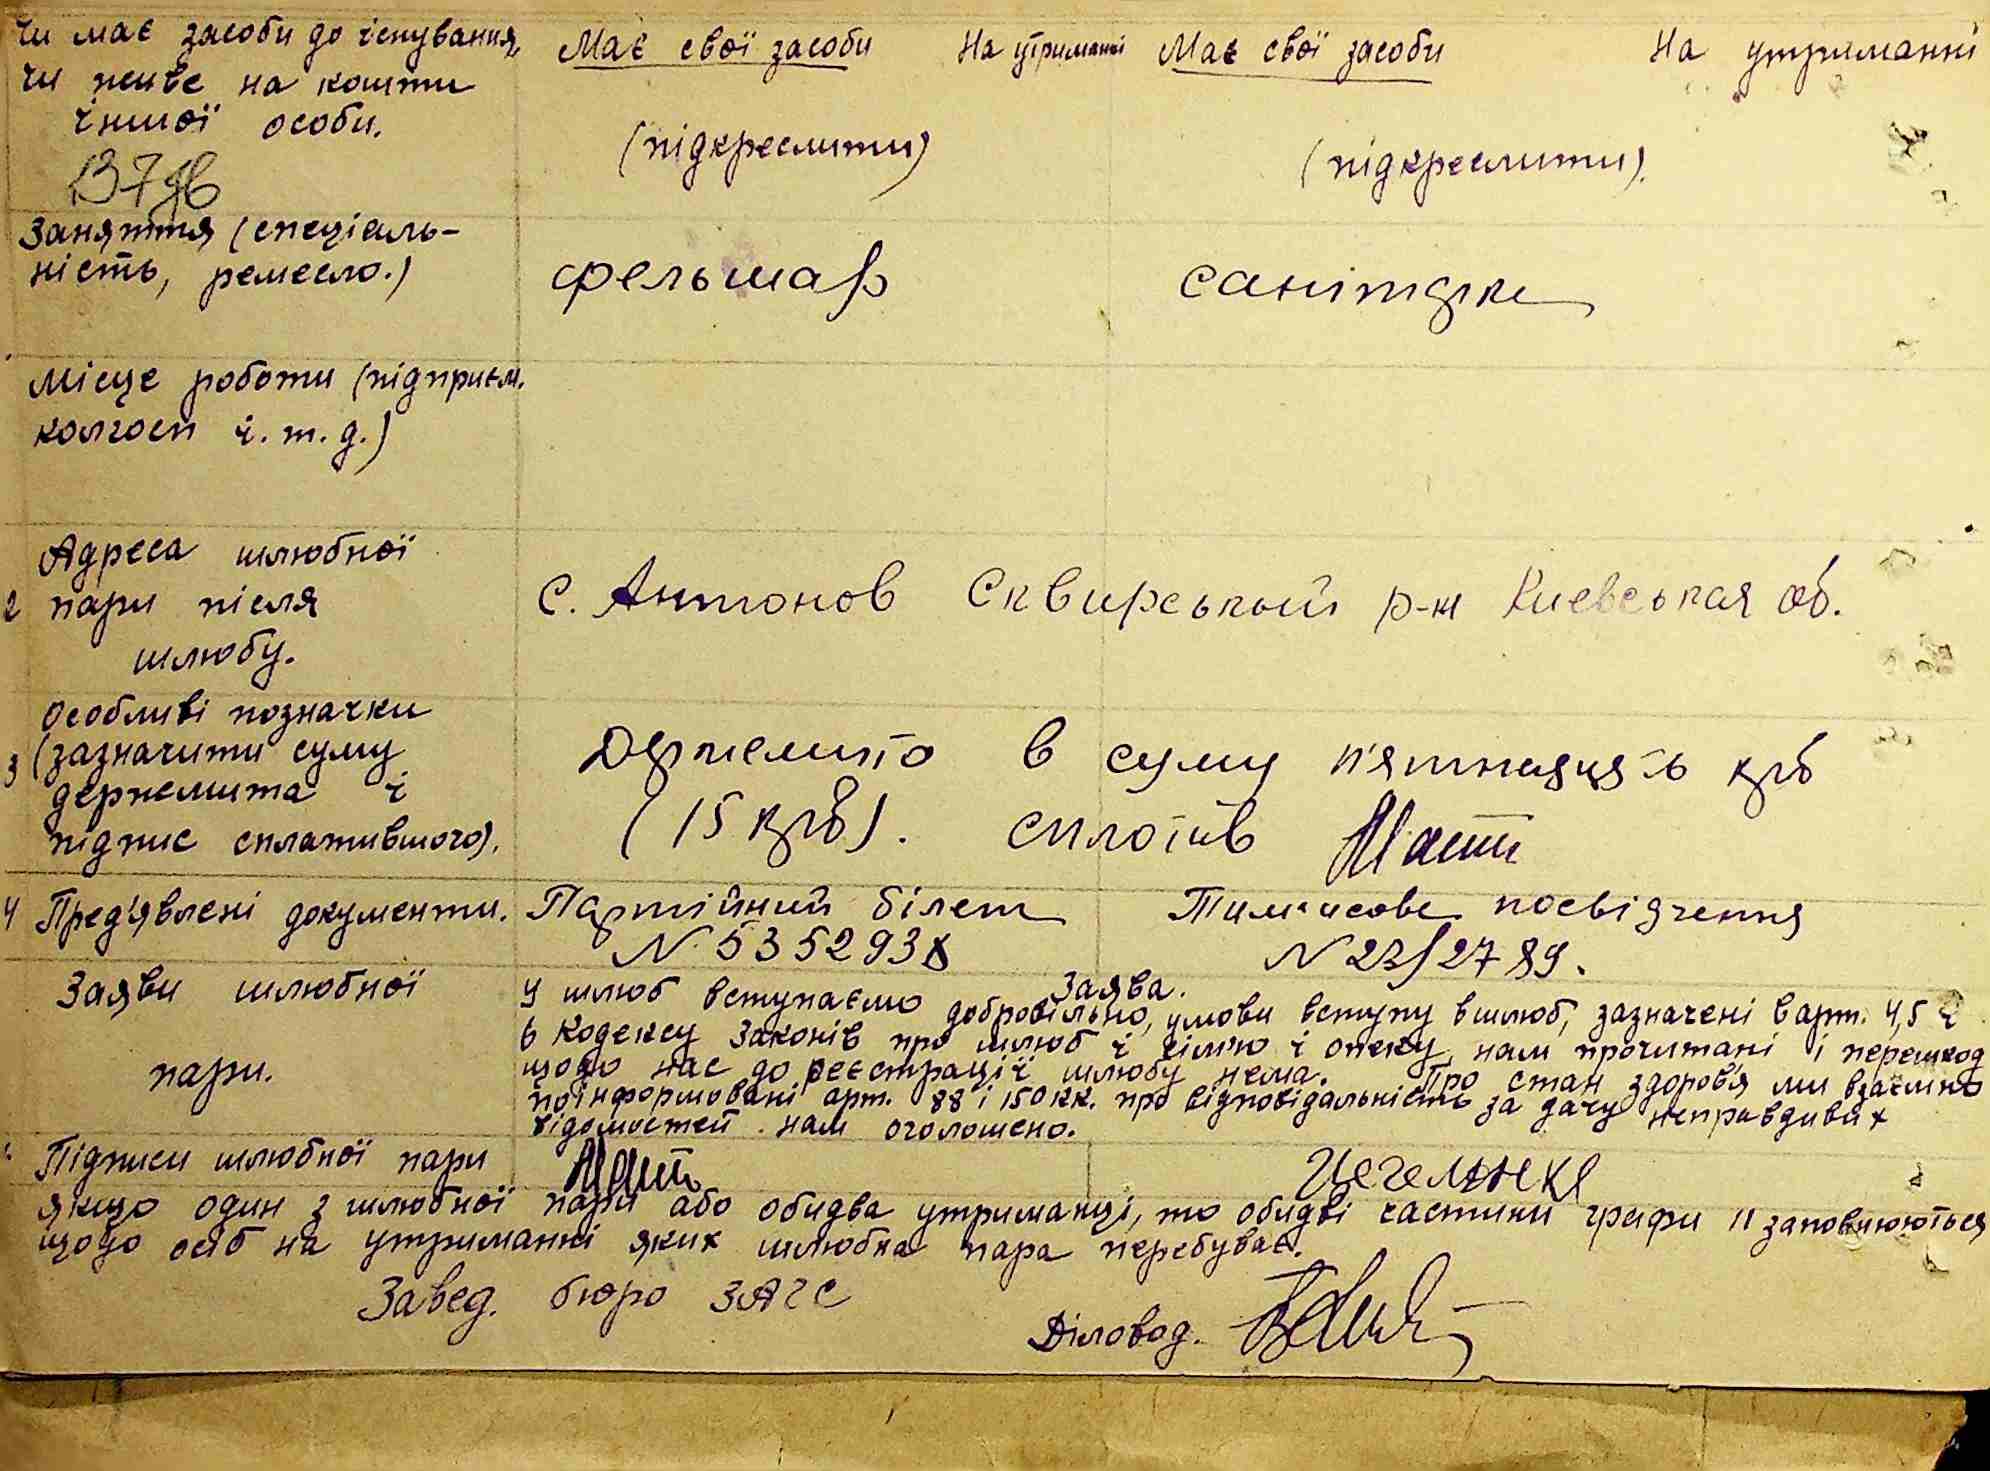 Чи має засоби до існування, Має свої засоби На утриманні Має свої засоби На утриманні
чи живе на кошти
іншої особи.
(підкреслити) (підкреслити).
Заняття (спеціаль-
ність, ремесло.) фельшар санітарка
Місце роботи (підприєм.
колгосп і. т. д.)
Адреса шлюбної
2 пари після с. Антонов Сквирський р-н Киевськая об.
шлюбу.
Особливі позначки
(зазначити суму Держмито в суму п'ятнадцять крб
3 держмита і
підпис сплатившого). (15 крб). сплотив
4 Пред'явлені документи. Партійний білет Тимчасове посвідчення
N 5352938 N 23/2789.
Заяви шлюбної Заява.
У шлюб вступаємо добровільно, умови вступу в шлюб, зазначені в арт. 4,5 і
6 Кодексу Законів про шлюб і сім'ю і опеку, нам прочитані і перешкод
пари. щодо нас до реєстрації шлюбу нема. Про стан здоров'я ми взаємно
поінформовані арт. 88 і 150 КК. про відповідальність за дачу неправдивих
відомостей нам оголошено.
Підписи шлюбної пари
якщо один з шлюбної пари або обидва утриманці, то обидві частини графи 11 заповнюються
щодо осіб на утриманні яких шлюбна пара перебуває.
Завед. бюро ЗАГС
Діловод.